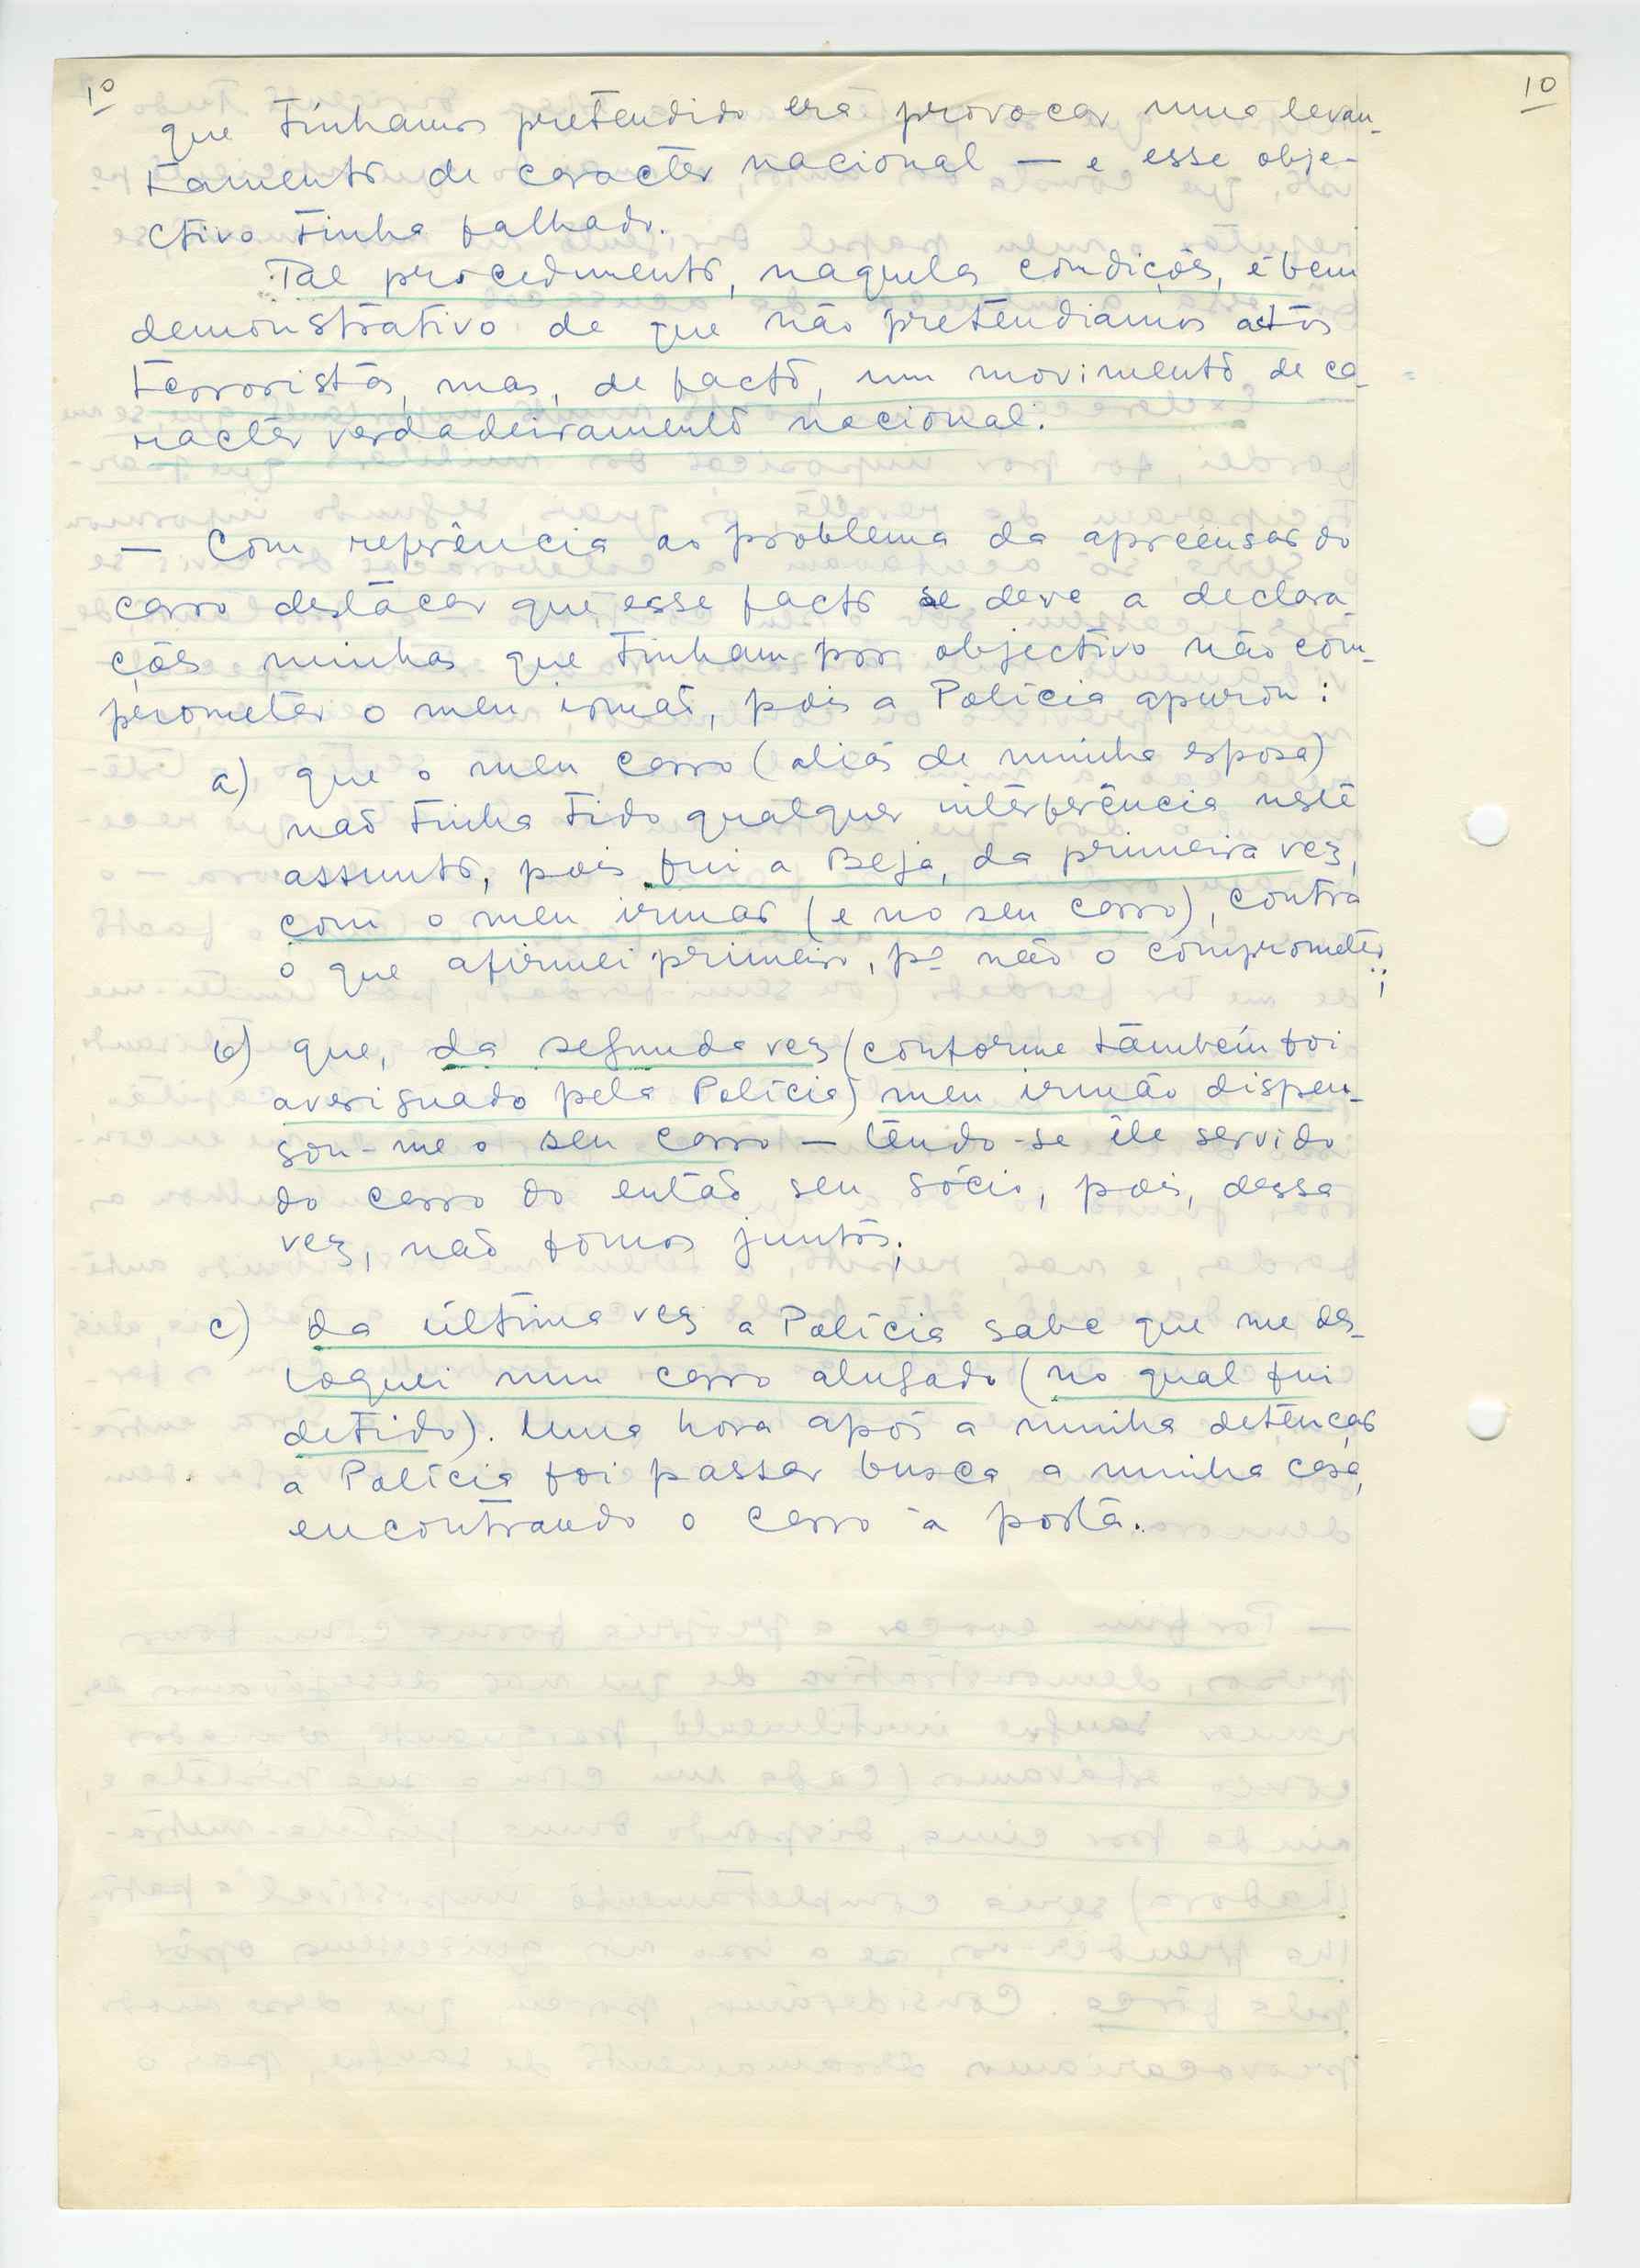 10 10
que tínhamos pretendido era provocar uma levan-
tamento de caracter nacional — e esse obje-
ctivo tinha falhado.
Tal procedimento, naquelas condições, é bem
demonstrativo de que não pretendiamos actos
terroristas, mas, de facto, um movimento de ca-
racter verdadeiramente nacional.
— Com referência ao problema da apreensão do
carro destacar que esse facto se deve a declara-
ções minhas que tinham por objectivo não com-
prometer o meu irmão, pois a Polícia apurou:
a) que o meu carro (aliás de minha esposa)
não tinha tido qualquer interferência neste
assunto, pois fui a Beja, da primeira vez,
com o meu irmão (e no seu carro), contra
o que afirmei primeiro, pª não o comprometer;
b) que, da segunda vez (conforme também foi
averiguado pela Polícia) meu irmão dispen-
sou-me o seu carro — tendo-se êle servido
do carro do então seu sócio, pois, dessa
vez, não fomos juntos;
c) da última vez a Polícia sabe que me des-
loquei num carro alugado (no qual fui
detido). Uma hora após a minha detenção
a Polícia foi passar busca a minha casa,
encontrando o carro à porta.